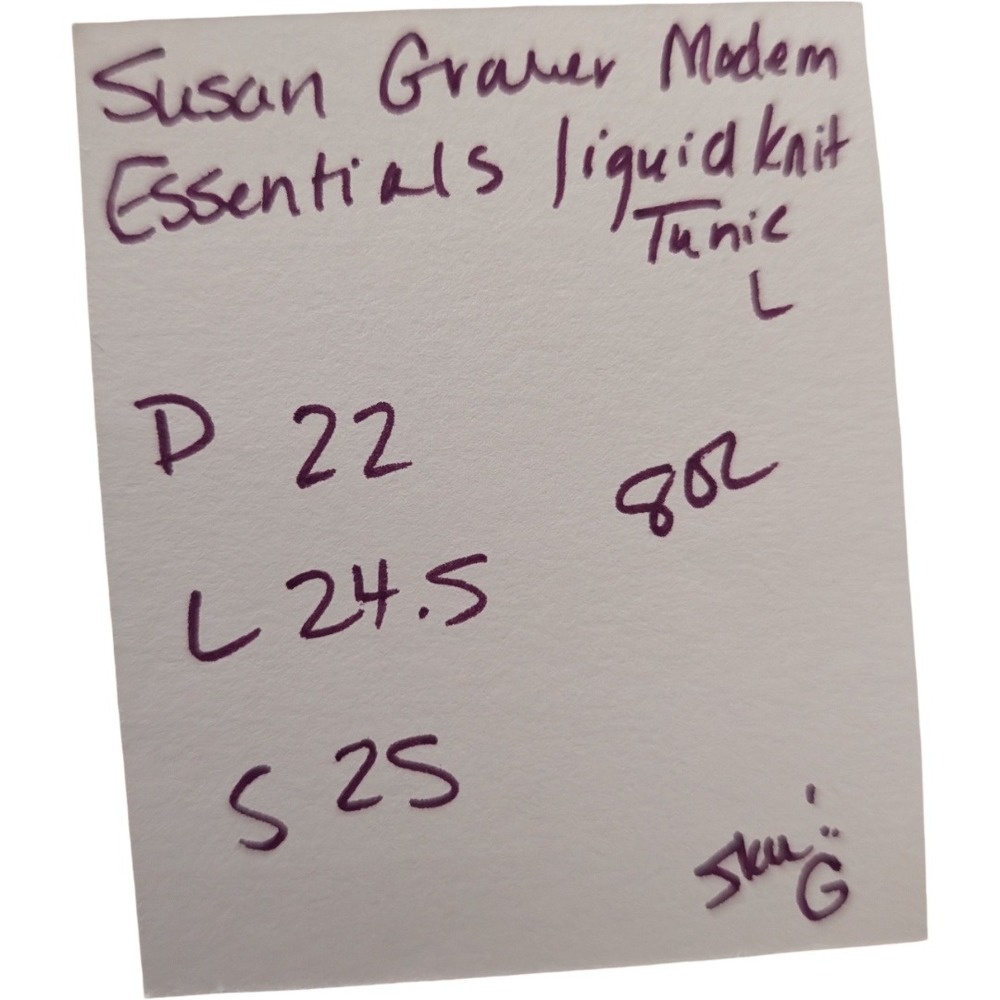 Susan Graver Modern
Essentials liquid knit
Tunic
L
D 22
8oz
L 24.5
S 25
Sku:
G